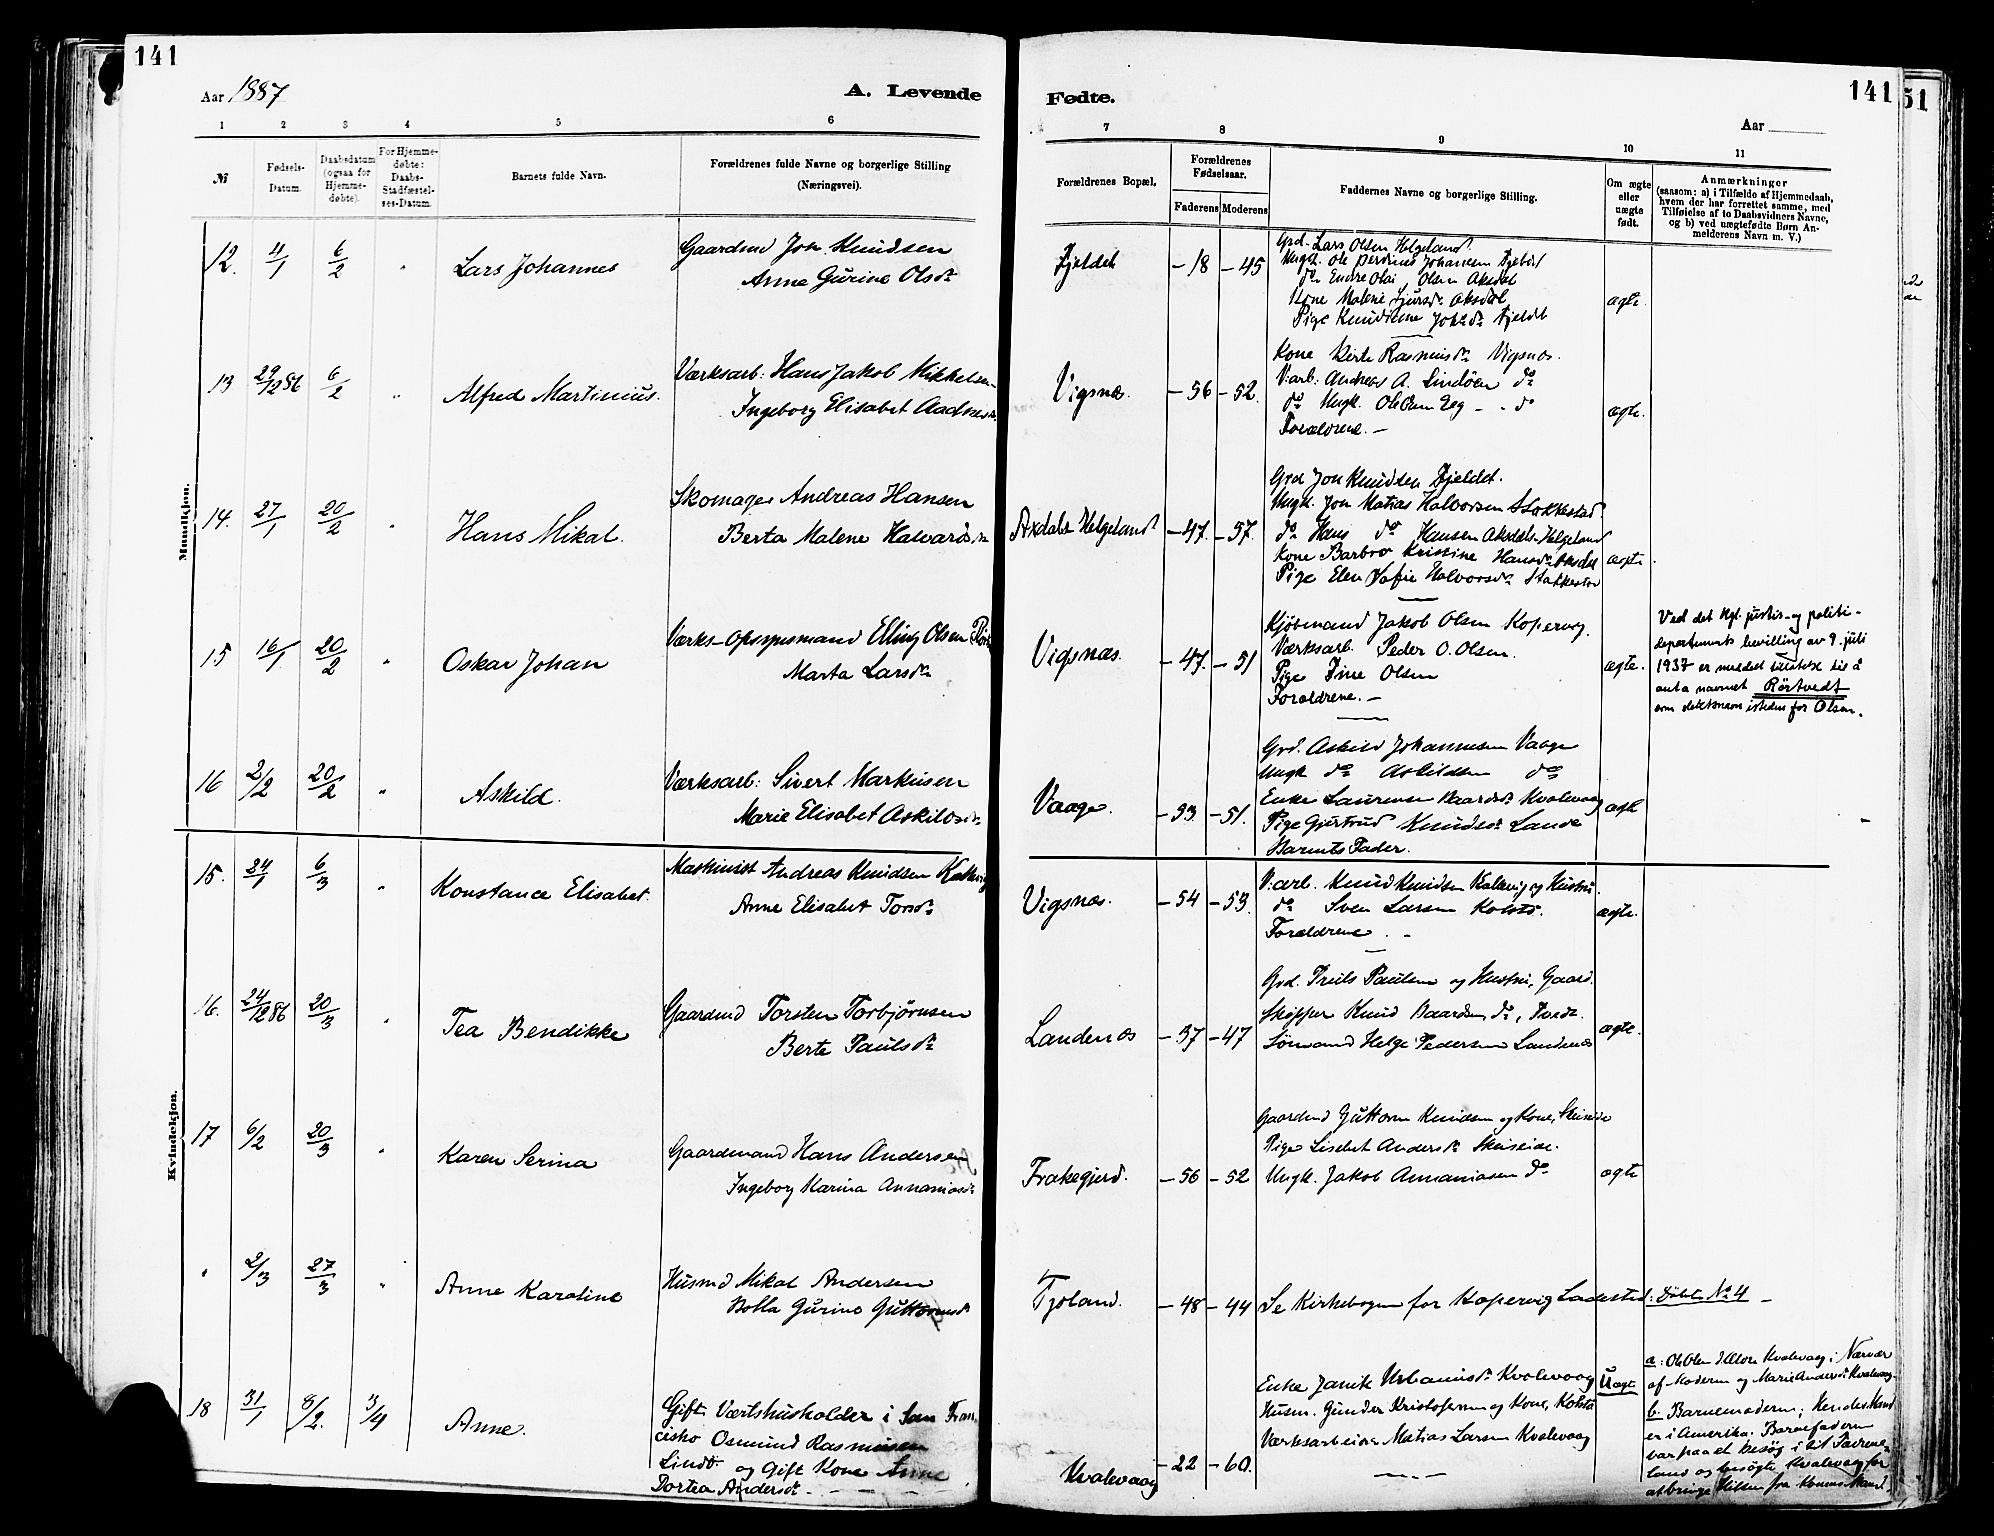 141
Aar 1887
A. Levende
1 2 3 4 5 6
№
Fødsels-Datum.
Daabsdatum (ogsaa for Hjemmedøbte).
For Hjemmedøbte: Daabs-Stadfæstelses-Datum.
Barnets fulde Navn.
Forældrenes fulde Navne og borgerlige Stilling (Næringsvei).
Mandkjøn.
12. 4/1 6/2 " Lars Johannes
Gaardmd Jon Knudsen
Anne Gurine Olsdr
13 29/12 86 6/2 " Alfred Martinius.
Værksarb: Hans Jakob Mikkelsen
Ingeborg Elisabet Aadnesdr
14. 27/1 20/2 " Hans Mikal.
Skomager Andreas Hansen
Berta Malene Halvardsdr
15 16/1 20/2 " Oskar Johan
Værks-Opsynsmand Elling Olsen
Marta Larsdr
16 2/2 20/2 " Askild.
Værksarb: Sivert Markusen
Marie Elisabet Askildsdr
Kvindekjøn.
15. 24/1 6/3 " Konstance Elisabet.
Maskinist Andreas Knudsen
Anne Elisabet Torsdr
16. 24/12 86 20/3 " Tea Bendikke
Gaardmd Torsten Torbjørnsen
Berte Paulsdr
17 6/2 20/3 " Karen Serina
Gaardmand Hans Andersen
Ingeborg Karina Annaniasdr
" 2/3 27/3 " Anne Karoline
Husmd Mikal Andersen
Bolla Gurine Guttormsdr
18 31/1 8/2. 3/4 Anne.
Gift Værtshusholder i San Fran
cisko Osmund Rasmussen
Lindø. og Gift Kone Anne
Dortea Andersdr
141
51
Fødte.
Aar
7 8 9 10 11
Forældrenes Bopæl.
Forældrenes Fødselsaar.
Faderens Moderens
Faddernes Navne og borgerlige Stilling.
Om ægte eller uægte født.
Anmærkninger
(saasom: a) i Tilfælde af Hjemmedaab,
hvem der har forrettet samme, med
Tilføielse af to Daabsvidners Navne,
og b) ved uægtefødte Børn An-
melderens Navn m. V.)
Fjeldet – 18 – 45
Grd. Lars Olsen Helgeland.
Ungk. Ole Johansen
do Endre Olai Olsen Aksdal
Kone Malene Aksdal
Pige Knudine Fjeldet
ægte
Vigsnæs. – 56 – 52.
Kone Rasmusdr Vigsnæs.
V.arb. Andreas A. Lindøen do
do Ungk. Ole – " do
Forældrene. –
ægte.
Axdals Helgeland – 47. – 57.
Grd Jon Knudsen Fjeldet.
Ungk. Jon Matias Halvorsen Stokkestad
do Hans do Hansen Aksdals-Helgeland
Kone Barbro Kristine Hansdr Aksdal
Pige Elen Sofie Halvorsdr
ægte
Vigsnæs. – 47. – 51
Kjøbmand Jakob Olsen Kopervig.
Værksarb. Peder O. Olsen.
Pige Olsen
Forældrene. –
ægte.
Ved det kgl. justis- og politi-
departements bevilling av 9. juli
1937 er meddelt tillatelse til å
anta navnet Rørtvedt
som slektsnavn isteden for Olsen.
Vaage. – 53. – 51.
Grd. Askild Johannesen Vaage
Ungk do Askildsen do
Enke Baardsdr Kvalevaag
Pige Gjertrud Knudsdr Lande
Barnets Fader.
Vigsnæs. – 54 – 53.
V.arb. Knud Knudsen og Hustru.
do Sven Larsen Kolstø.
Forældrene. –
ægte.
Landenæs – 37 – 47
Grd. Truls Paulsen og Hustru, Gaard.
Skipper Knud Baardsen do,
Sømand Helge Pedersen Landenæs
ægte.
Frakegjerd. – 56 – 52
Gaardmd Guttorm Knudsen og Kone,
Pige Lisebet Andersdr
Ungk. Jakob Annaniasen do
ægte
Tjoland. – 48 – 44
Se Kirkebogen for Kopervig Ladested: Døbte No 4 –
Kvalevaag – 22 – 60.
Enke Urbanusdr Kvalevaag
Husm. Gunder Kristofersen og Kone, Kolstø
Værksarbeider Matias Larsen Kvalevaag
Uægte
a: Ole Olsen Kvalevaag i Nærvær
af Moderen og Marie Andersdr Kvalevaag
b. Barnemoderen; Hendes Mand
er i Amerika. Barnefaderen
var paa et Besøg i sit Fædrene-
land og besøgte Kvalevaag for
at bringe Hilsen fra Konens Mand.